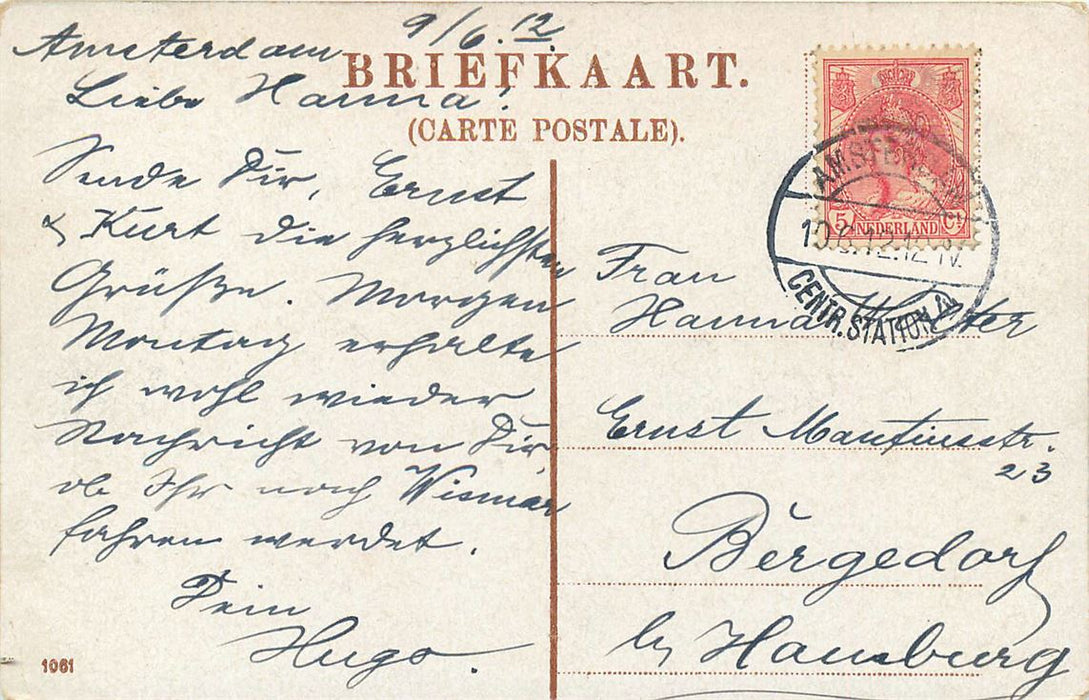 Amsterdam 9/6.12.
BRIEFKAART.
(CARTE POSTALE).
Liebe Hanna!
Sende Dir, Ernst
& Kurt die herzlichsten
Grüße. Morgen
Montag erhalte
ich wohl wieder
Nachricht von Dir,
ob Ihr nach Wismar
fahren werdet.
Dein
Hugo.
1061
5 Ct
NEDERLAND
AMSTERDAM
10.6.12.12-1V.
CENTR. STATION
Frau
Hanna
Ernst Mantiusstr.
23
Bergedorf
b/ Hamburg